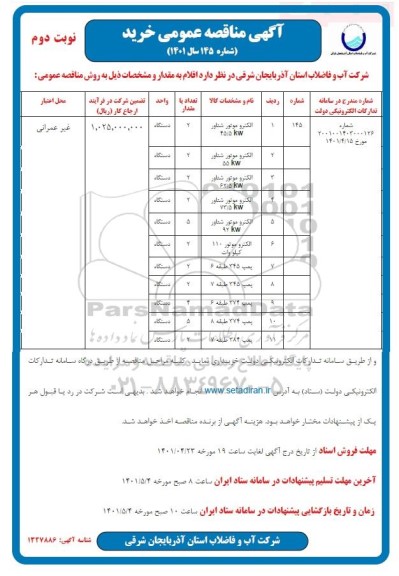 آگهی مناقصه عمومی خرید
(شماره ۱۴۵ سال ۱۴۰۱)
نوبت دوم
شرکت آب و فاضلاب استان آذربایجان شرقی در نظر دارد اقلام به مقدار و مشخصات ذیل به روش مناقصه عمومی:
شماره مندرج در سامانه تدارکات الکترونیکی دولت | شماره | ردیف | نام و مشخصات کالا | تعداد یا مقدار | واحد | تضمین شرکت در فرآیند ارجاع کار (ریال) | محل اعتبار
شماره ۲۰۰۱۰۰۱۴۰۳۰۰۰۱۲۶ مورخ ۱۴۰۱/۴/۱۵ | ۱۴۵ | ۱ | الکترو موتور شناور ۴۵/۵ kw | ۲ | دستگاه | ۱,۰۲۵,۰۰۰,۰۰۰ | غیر عمرانی
۲ | الکترو موتور شناور ۵۵ kw | ۲ | دستگاه
۳ | الکترو موتور شناور ۶۲/۵ kw | ۲ | دستگاه
الکترو موتور شناور ۷۳/۵ kw | دستگاه
۵ | الکترو موتور شناور ۹۲ kw | ۵ | دستگاه
۶ | الکترو موتور ۱۱۰ کیلو وات | ۲ | دستگاه
۷ | پمپ ۳۴۵ طبقه ۶ | ۲ | دستگاه
۸ | پمپ ۳۴۵ طبقه ۷ | ۲ | دستگاه
۹ | پمپ ۳۷۴ طبقه ۶ | ۴ | دستگاه
۱۰ | پمپ ۳۷۴ طبقه ۸ | ۵ | دستگاه
۱۱ | پمپ ۳۸۴ طبقه ۷ | دستگاه
ParsNamadData
۰۲۱-۸۸۳۴۹۶۷۰-۵
و از طریق سامانه تدارکات الکترونیکی دولت خریداری نماید. کلیه مراحل مناقصه از طریق درگاه سامانه تدارکات
الکترونیکی دولت (ستاد) به آدرس www.setadiran.ir انجام خواهد شد. بدیهی است شرکت در رد یا قبول هر
یک از پیشنهادات مختار خواهد بود. هزینه آگهی از برنده مناقصه اخذ خواهد شد.
مهلت فروش اسناد از تاریخ درج آگهی لغایت ساعت ۱۹ مورخه ۱۴۰۱/۰۴/۲۳
آخرین مهلت تسلیم پیشنهادات در سامانه ستاد ایران ساعت ۸ صبح مورخه ۱۴۰۱/۵/۴
زمان و تاریخ بازگشایی پیشنهادات در سامانه ستاد ایران ساعت ۱۰ صبح مورخه ۱۴۰۱/۵/۴
شرکت آب و فاضلاب استان آذربایجان شرقی
شناسه آگهی: ۱۳۳۷۸۸۶